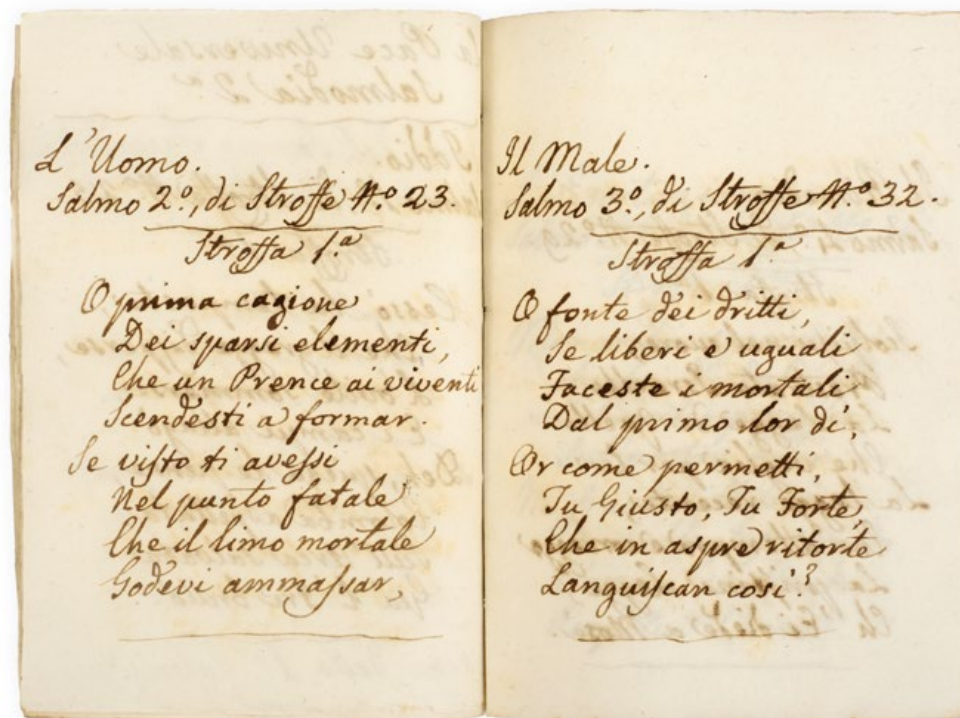 L'Uomo.
Salmo 2.º, di Stroffe N.º 23.
Stroffa 1.ª
O prima cagione
Dei sparsi elementi,
Che un Prence ai viventi
Scendesti a formar.
Se visto ti avessi
Nel punto fatale
Che il limo mortale
Godevi ammassar,
Il Male.
Salmo 3.º, di Stroffe N.º 32.
Stroffa 1.ª
O fonte dei dritti,
Se liberi e uguali
Faceste i mortali
Dal primo lor dì,
Or come permetti,
Tu Giusto, Tu Forte,
Che in aspre ritorte
Languiscan così?